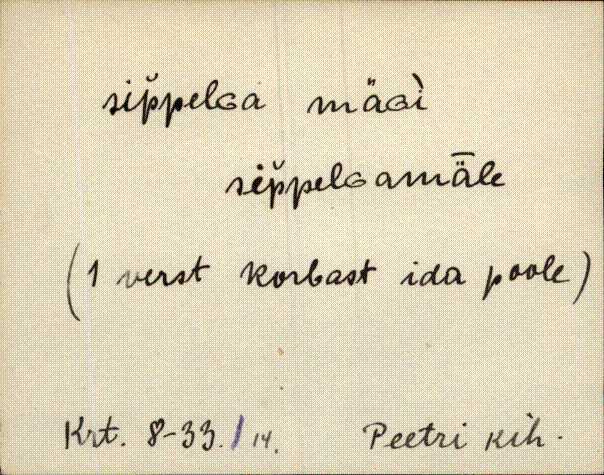 sip̆pelɢa mäɢi̇̀
sep̆pelɢamǟle
(1 verst korbast ida poole)
Krt. 8-33./14. Peetri kih.